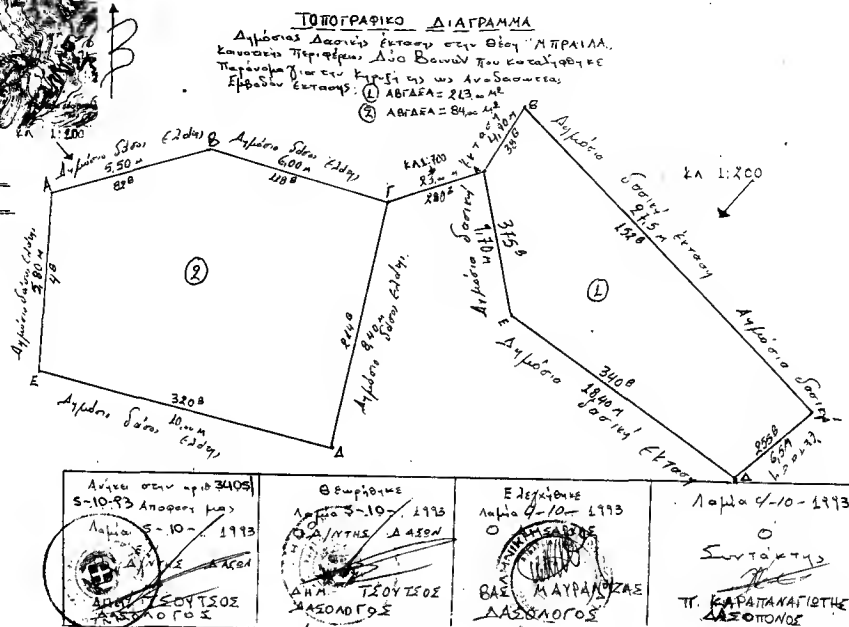 ΤΟΠΟΓΡΑΦΙΚΟ ΔΙΑΓΡΑΜΜΑ
Δημόσιας Δασικής έκτασης στην θέση "ΜΠΡΑΙΛΑ"
Κοινοτικής Περιφέρειας Δύο Βουνών που καταλήφθηκε
Παράνομα για την Κήρυξή της ως Αναδασωτέας
Εμβαδόν έκτασης: ① ΑΒΓΔΕΑ = 213,00 Μ²
② ΑΒΓΔΕΑ = 84,00 Μ²
Β
κλ 1:200
Α
Δημόσιο δάσος Ελάτης
5,50 Μ
82Β
Β
Δημόσιο δάσος Ελάτης
6,00 Μ
118Β
Γ
Δημόσιο δάσος Ελάτης
8,40 Μ
214Β
Δ
Δημόσιο δάσος Ελάτης
10,00 Μ
320Β
Ε
Δημόσιο δάσος Ελάτης
5,80 Μ
4Β
②
23,00 Μ
280Β
έκταση
4,90 Μ
38Β
Β
κλ 1:200
Δημόσιο δασική έκταση
27,5 Μ
152Β
Δημόσιο δασική
6,5 Μ
255Β
Δ
Δημόσιο δασική έκταση
18,40 Μ
340Β
Ε
Δημόσιο δασική
9,70 Μ
375Β
①
Ανήκει στην αριθ 3405/
5-10-93 Απόφαση μας
Λαμία 5-10-1993
Δ/ΝΤΗΣ ΔΑΣΩΝ
ΔΗΜ. ΤΣΟΥΤΣΟΣ
ΔΑΣΟΛΟΓΟΣ
Θεωρήθηκε
Λαμία 5-10-1993
Ο Δ/ΝΤΗΣ ΔΑΣΩΝ
ΔΗΜ. ΤΣΟΥΤΣΟΣ
ΔΑΣΟΛΟΓΟΣ
Ελέγχθηκε
Λαμία 4-10-1993
Ο
ΒΑΣ ΜΑΥΡΑΝΖΑΣ
ΔΑΣΟΛΟΓΟΣ
Λαμία 4-10-1993
Ο
Συντάκτης
Π. ΚΑΡΑΠΑΝΑΓΙΩΤΗΣ
ΔΑΣΟΠΟΝΟΣ